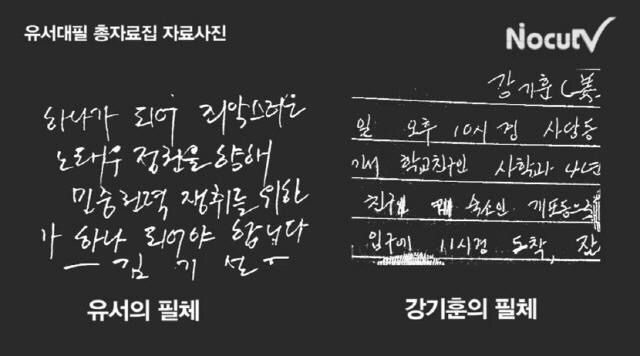 유서대필 총자료집 자료사진
NocutV
하나가 되어 죄악스러운
노태우 정권을 향해
민중권력 쟁취를 위한
가 하나 되어야 합니다
김 기 설
유서의 필체
강기훈
일 오후 10시경 사당동
기서 학교친구인 사학과 4년
친구 숙소인 개포동으로
입구에 11시경 도착, 잠
강기훈의 필체